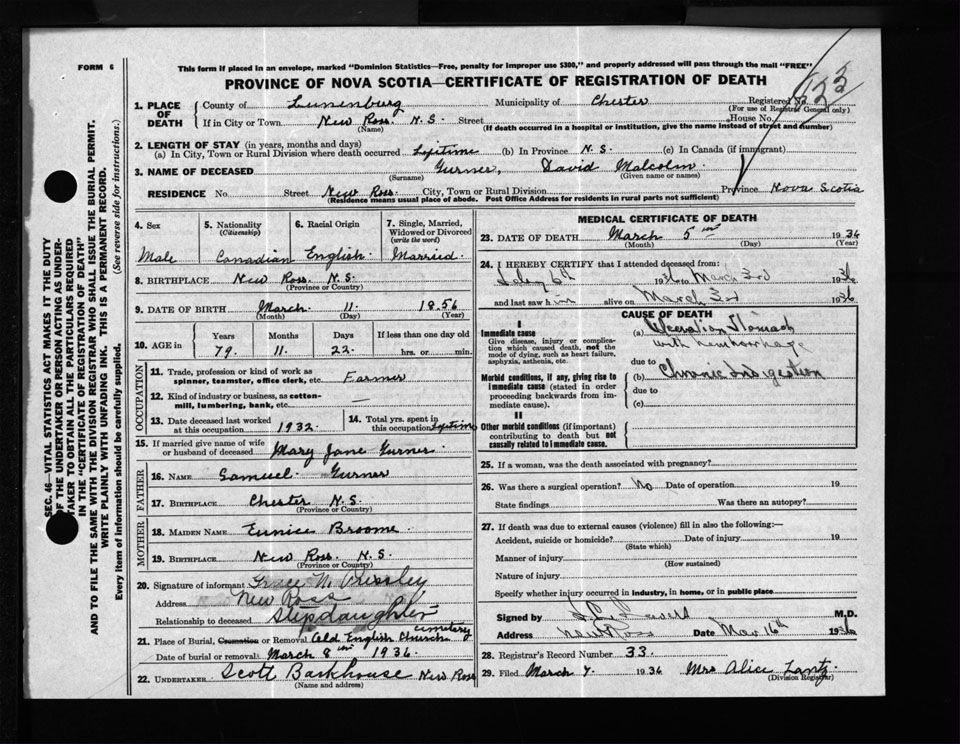 FORM 6
This form if placed in an envelope, marked "Dominion Statistics—Free, penalty for improper use $300," and properly addressed will pass through the mail "FREE"
PROVINCE OF NOVA SCOTIA—CERTIFICATE OF REGISTRATION OF DEATH
1. PLACE OF DEATH
County of Lunenburg Municipality of Chester Registered No.
(For use of Registrar General only)
If in City or Town New Ross. N. S. Street House No.
(Name) (If death occurred in a hospital or institution, give the name instead of street and number)
2. LENGTH OF STAY (in years, months and days)
(a) In City, Town or Rural Division where death occurred Lifetime (b) In Province N. S. (c) In Canada (if immigrant)
3. NAME OF DECEASED Turner, David Malcolm.
(Surname) (Given name or names)
RESIDENCE No. Street New Ross. City, Town or Rural Division Province Nova Scotia
(Residence means usual place of abode. Post Office Address for residents in rural parts not sufficient)
4. Sex Male
5. Nationality (Citizenship) Canadian
6. Racial Origin English.
7. Single, Married, Widowed or Divorced (write the word) Married.
8. BIRTHPLACE New Ross. N. S.
(Province or Country)
9. DATE OF BIRTH March 11. 1856
(Month) (Day) (Year)
10. AGE in Years Months Days If less than one day old
79. 11. 22. hrs. or min.
OCCUPATION
11. Trade, profession or kind of work as spinner, teamster, office clerk, etc. Farmer
12. Kind of industry or business, as cotton-mill, lumbering, bank, etc. —
13. Date deceased last worked at this occupation 1932
14. Total yrs. spent in this occupation Lifetime
15. If married give name of wife or husband of deceased Mary Jane Turner
FATHER
16. NAME Samuel Turner
17. BIRTHPLACE Chester N. S.
(Province or Country)
MOTHER
18. MAIDEN NAME Eunice Broome.
19. BIRTHPLACE New Ross. N. S.
(Province or Country)
20. Signature of informant Grace N.
Address New Ross
Relationship to deceased Stepdaughter
21. Place of Burial, Cremation or Removal Old English Church cemetery
Date of burial or removal March 8 1936
22. UNDERTAKER Scott Barkhouse New Ross
(Name and address)
MEDICAL CERTIFICATE OF DEATH
23. DATE OF DEATH March 5 1936
(Month) (Day) (Year)
24. I HEREBY CERTIFY that I attended deceased from:
6th 1936 to March 3rd 1936
and last saw him alive on March 3rd 1936
CAUSE OF DEATH
I
Immediate cause
Give disease, injury or complication which caused death, not the mode of dying, such as heart failure, asphyxia, asthenia, etc.
(a) Ulceration Stomach
with hemorrhage
due to
Morbid conditions, if any, giving rise to immediate cause (stated in order proceeding backwards from immediate cause).
(b) Chronic Indigestion
due to
(c)
II
Other morbid conditions (if important) contributing to death but not causally related to immediate cause.
25. If a woman, was the death associated with pregnancy?
26. Was there a surgical operation? No Date of operation 19
State findings Was there an autopsy?
27. If death was due to external causes (violence) fill in also the following:—
Accident, suicide or homicide? Date of injury 19
(State which)
Manner of injury
(How sustained)
Nature of injury
Specify whether injury occurred in industry, in home, or in public place
Signed by M.D.
Address New Ross Date Mar 16th 1936
28. Registrar's Record Number 33.
29. Filed March 7. 1936 Mrs Alice Lantz
(Division Registrar)
SEC. 46—VITAL STATISTICS ACT MAKES IT THE DUTY
OF THE UNDERTAKER OR PERSON ACTING AS UNDER-
TAKER TO OBTAIN ALL THE PARTICULARS REQUIRED
IN THE "CERTIFICATE OF REGISTRATION OF DEATH"
AND TO FILE THE SAME WITH THE DIVISION REGISTRAR WHO SHALL ISSUE THE BURIAL PERMIT.
WRITE PLAINLY WITH UNFADING INK. THIS IS A PERMANENT RECORD.
Every item of information should be carefully supplied. (See reverse side for instructions.)